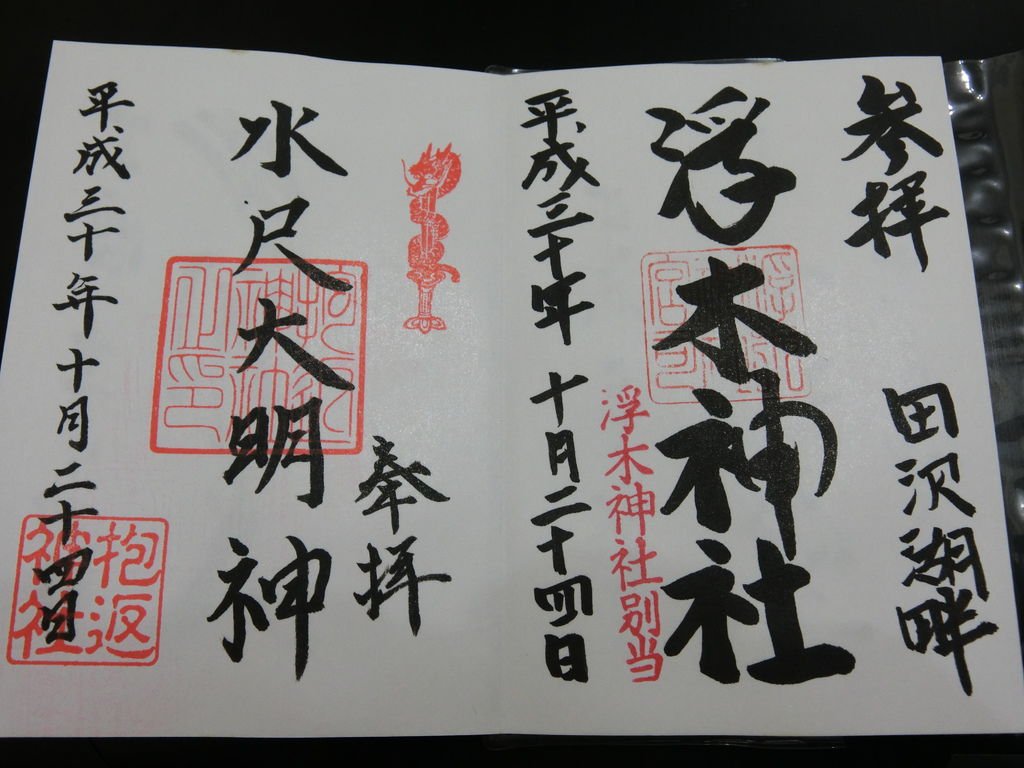 参拝
田沢湖畔
浮木神社
浮木神社別当
平成三十年十月二十四日
奉拝
水尺大明神
抱返
神社
平成三十年十月二十四日